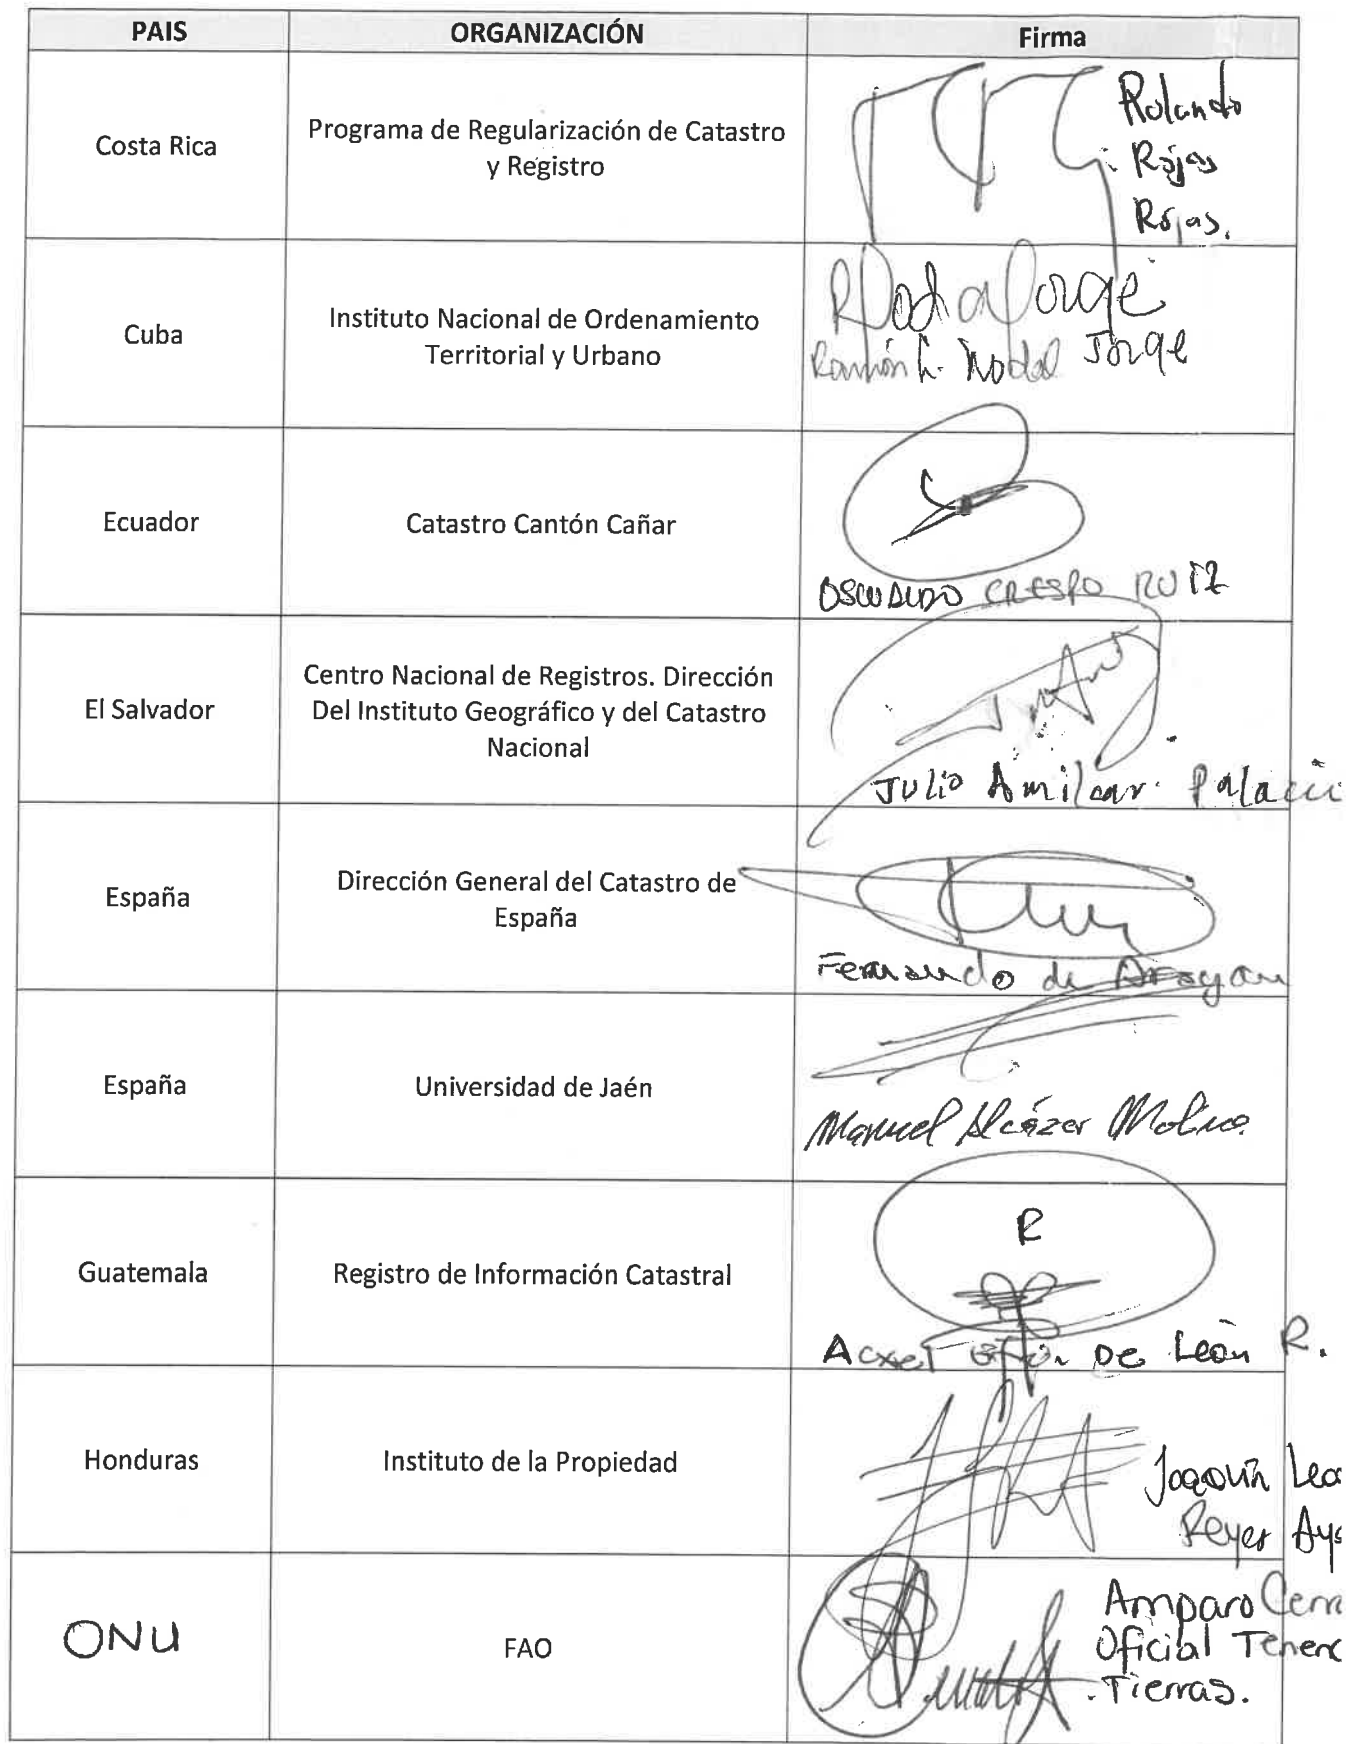 PAIS
ORGANIZACIÓN
Firma
Costa Rica
Programa de Regularización de Catastro
y Registro
Rolando
Rojas
Rojas.
Cuba
Instituto Nacional de Ordenamiento
Territorial y Urbano
Jorge
Ramón Nodal Jorge
Ecuador
Catastro Cantón Cañar
CRESPO RUIZ
El Salvador
Centro Nacional de Registros. Dirección
Del Instituto Geográfico y del Catastro
Nacional
Julio Amilcar Palaci
España
Dirección General del Catastro de
España
Fernando de Aragon
España
Universidad de Jaén
Manuel Alcázar Molina
Guatemala
Registro de Información Catastral
R
Acxel De León R.
Honduras
Instituto de la Propiedad
Joaquín Lea
Reyes Ays
ONU
FAO
Amparo Cerr
Oficial Tenenc
Tierras.